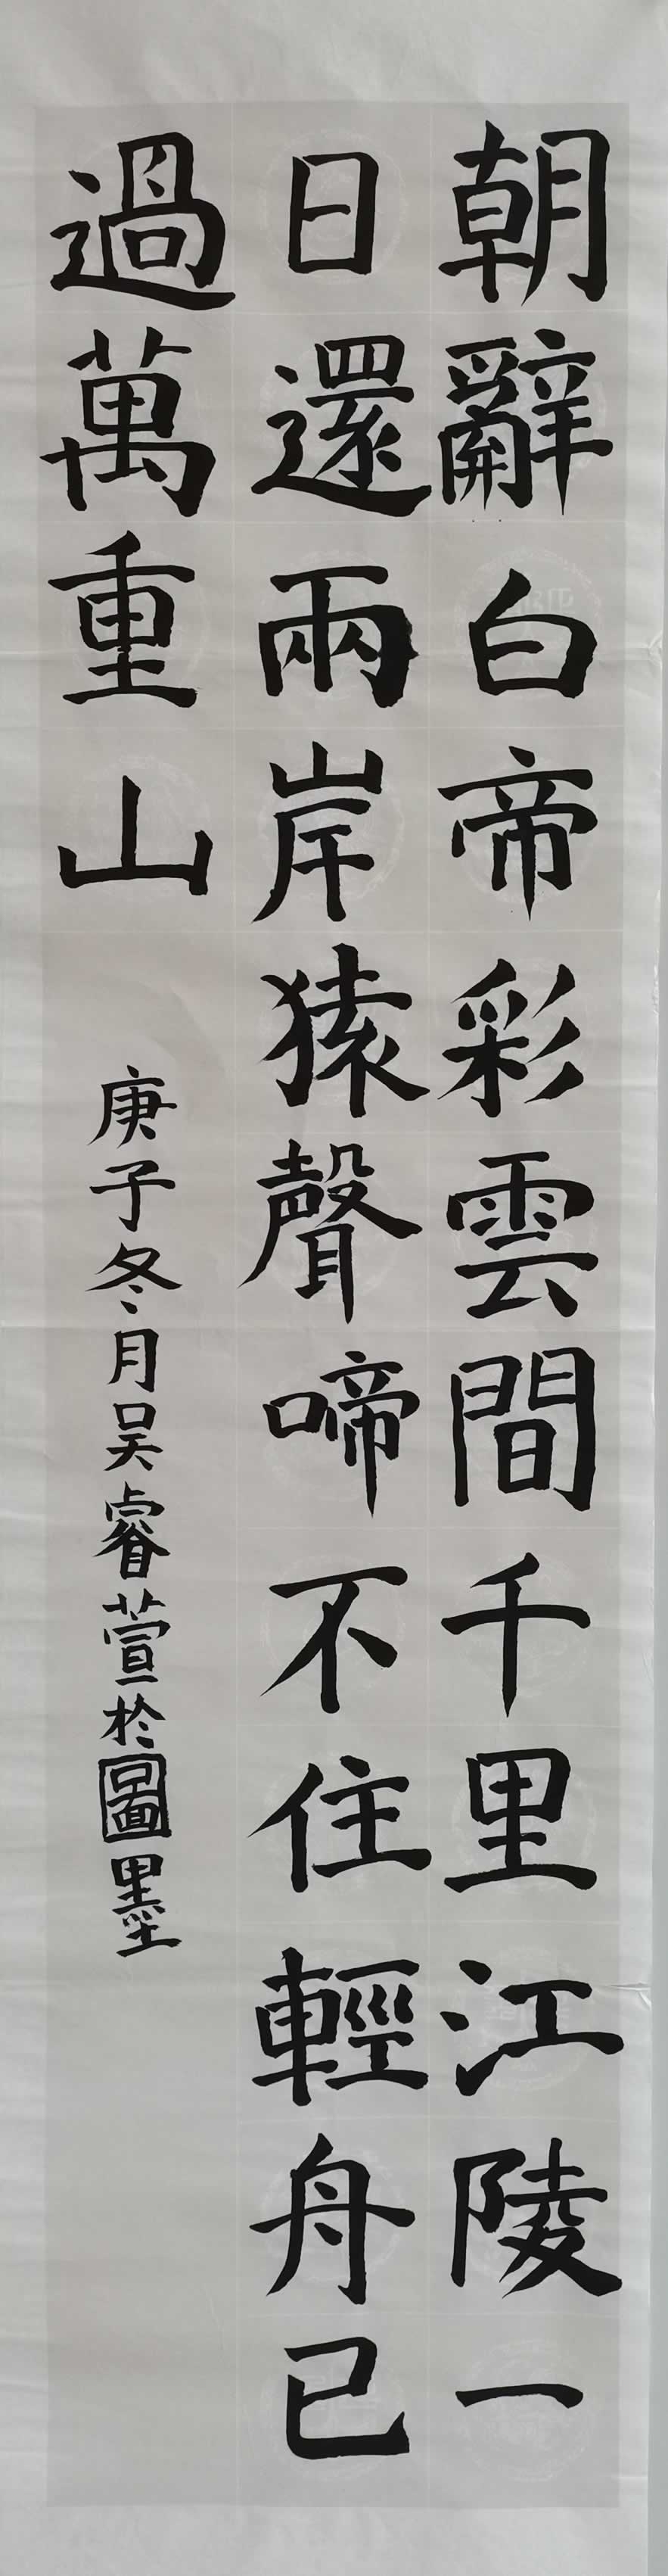 朝辭白帝彩雲間千里江陵一
日還兩岸猿聲啼不住輕舟已
過萬重山
庚子冬月吴睿萱於圖墨